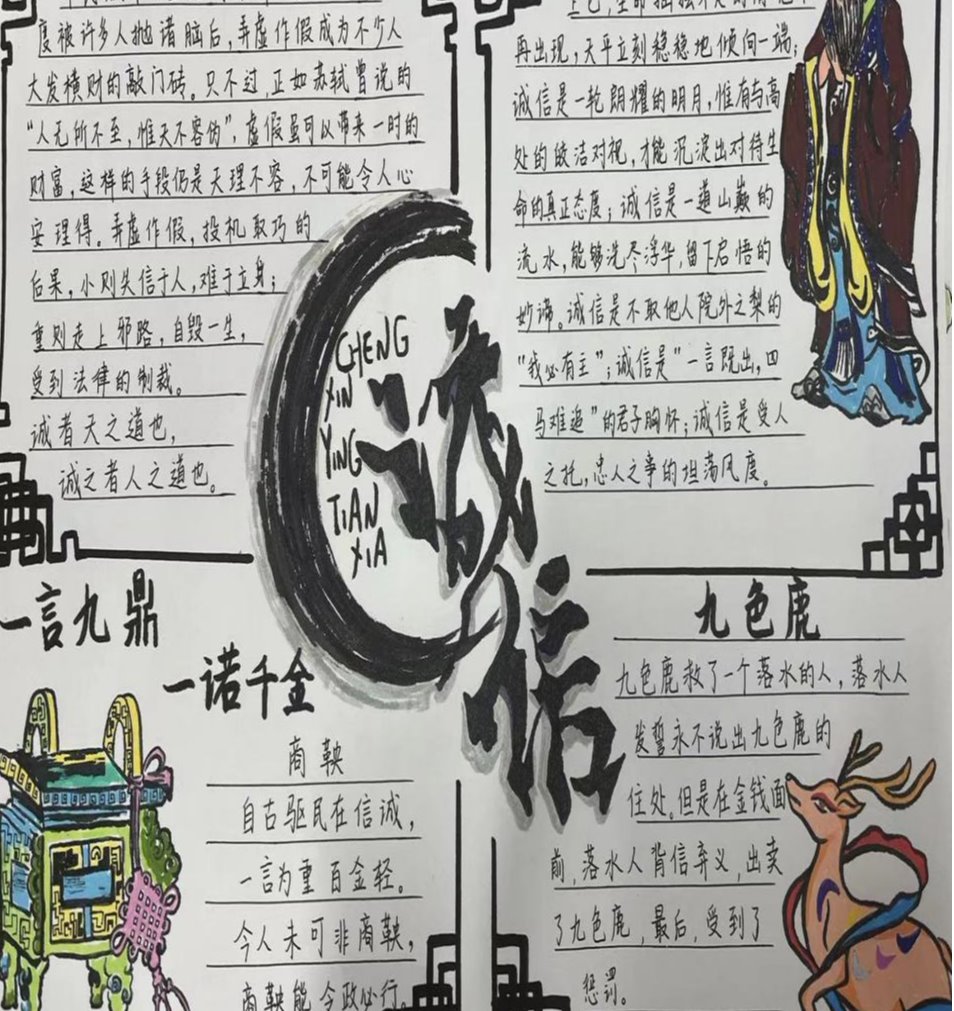 度被许多人抛诸脑后，弄虚作假成为不少人
大发横财的敲门砖。只不过，正如苏轼曾说的
“人无所不至，惟天不容伪”，虚假虽可以带来一时的
财富，这样的手段仍是天理不容，不可能令人心
安理得。弄虚作假，投机取巧的
后果，小则失信于人，难于立身；
重则走上邪路，自毁一生，
受到法律的制裁。
诚者天之道也，
诚之者人之道也。
再出现，天平立刻稳稳地倾向一端；
诚信是一轮朗耀的明月，惟有与高
处的皎洁对视，才能沉淀出对待生
命的真正态度；诚信是一道山巅的
流水，能够洗尽浮华，留下启悟的
妙谛。诚信是不取他人院外之梨的
“我必有主”；诚信是“一言既出，四
马难追”的君子胸怀；诚信是受人
之托，忠人之事的坦荡风度。
CHENG
XIN
YING
TIAN
XIA
诚信
一言九鼎
一诺千金
商鞅
自古驱民在信诚，
一言为重百金轻。
今人未可非商鞅，
商鞅能令政必行。
九色鹿
九色鹿救了一个落水的人，落水人
发誓永不说出九色鹿的
住处。但是在金钱面
前，落水人背信弃义，出卖
了九色鹿，最后，受到了
惩罚。